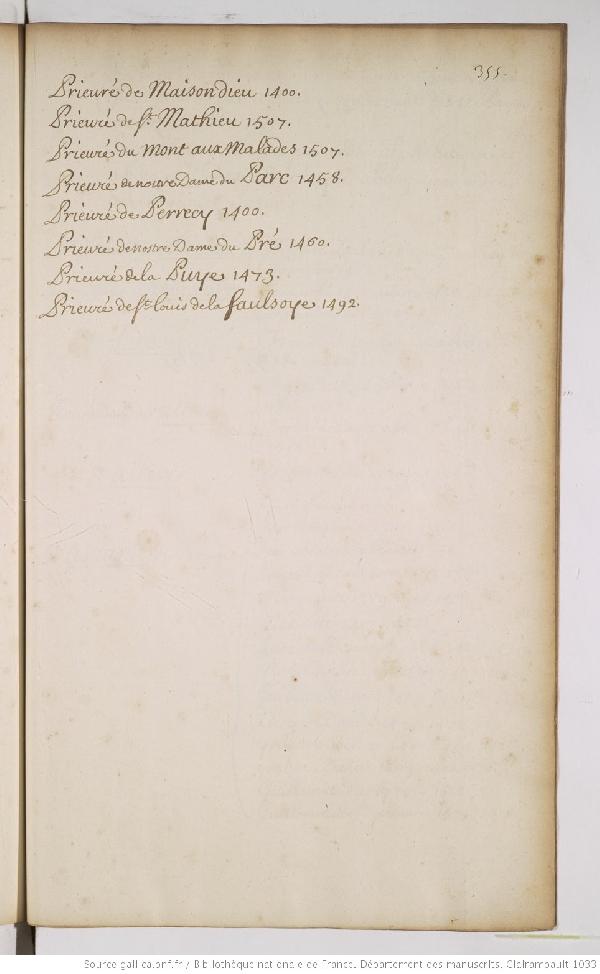 355.
Prieuré de Maisondieu 1400.
Prieuré de St. Mathieu 1507.
Prieuré du Mont aux Malades 1507.
Prieuré de nostre Dame du Parc 1458.
Prieuré de Perrecy 1400.
Prieuré de nostre Dame du Pré 1460.
Prieuré de la Puye 1473.
Prieuré de St. Louis de la faulsoye 1492.
Source gallica.bnf.fr / Bibliothèque nationale de France. Département des manuscrits. Clairambault 1033